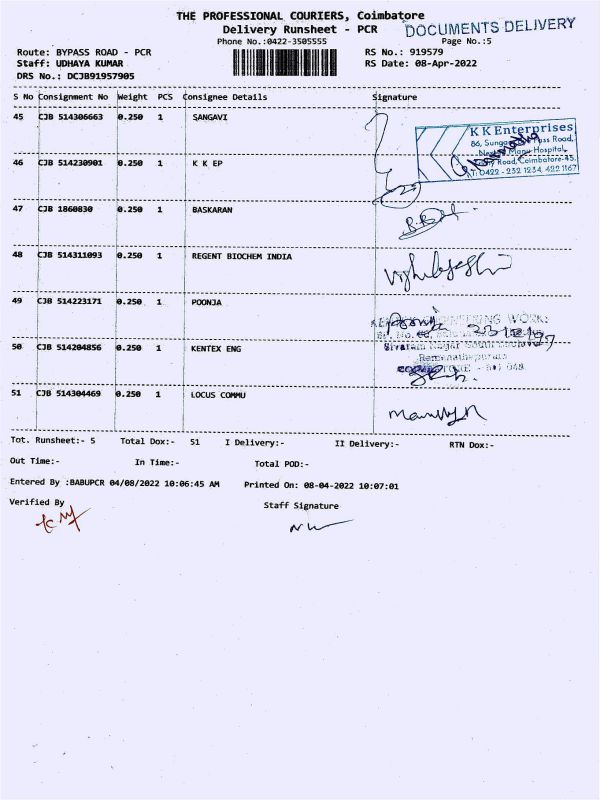 THE PROFESSIONAL COURIERS, Coimbatore
Delivery Runsheet - PCR
DOCUMENTS DELIVERY
Phone No.:0422-3505555
Page No.:5
Route: BYPASS ROAD - PCR
RS No.: 919579
Staff: UDHAYA KUMAR
RS Date: 08-Apr-2022
DRS No.: DCJB91957905
S No Consignment No Weight PCS Consignee Details Signature
45 CJB 514306663 0.250 1 SANGAVI
K K Enterprises
86, Pass Road,
Hospital,
Road, Coimbatore-45.
T: 0422 - 232 1234, 422 1167
46 CJB 514230901 0.250 1 K K EP
47 CJB 1860830 0.250 1 BASKARAN
48 CJB 514311093 0.250 1 REGENT BIOCHEM INDIA
49 CJB 514223171 0.250 1 POONJA
Sivaram Nagar
50 CJB 514204856 0.250 1 KENTEX ENG
51 CJB 514304469 0.250 1 LOCUS COMMU
Tot. Runsheet:- 5 Total Dox:- 51 I Delivery:- II Delivery:- RTN Dox:-
Out Time:- In Time:- Total POD:-
Entered By :BABUPCR 04/08/2022 10:06:45 AM Printed On: 08-04-2022 10:07:01
Verified By
Staff Signature